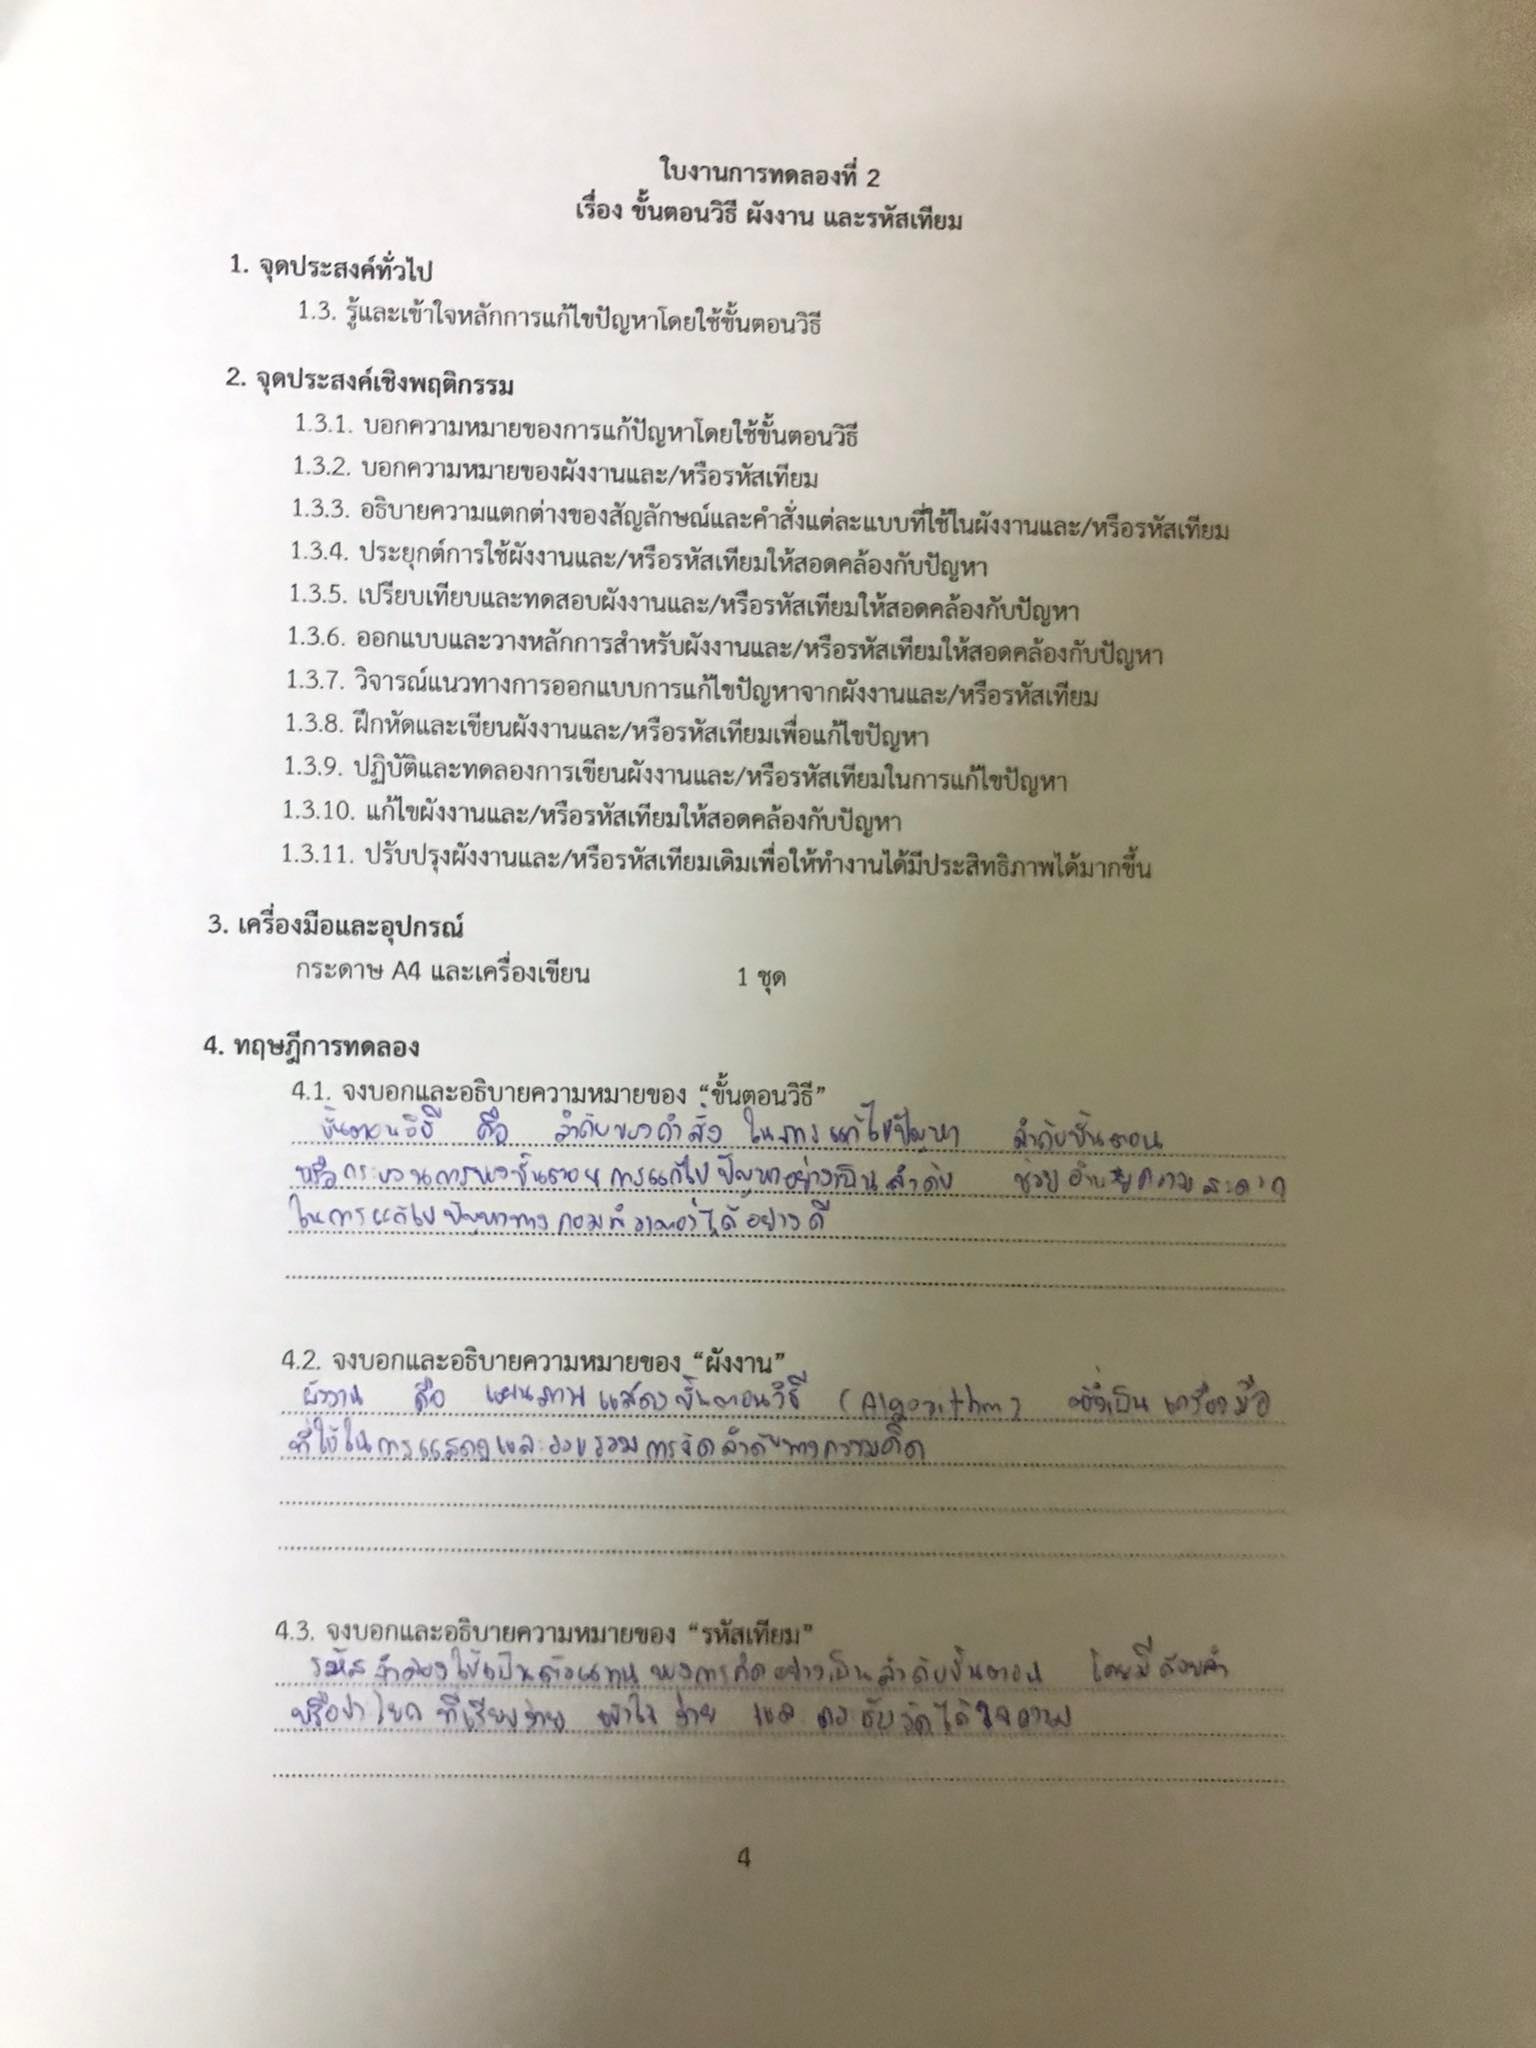 ใบงานการทดลองที่ 2
เรื่อง ขั้นตอนวิธี ผังงาน และรหัสเทียม
1. จุดประสงค์ทั่วไป
1.3. รู้และเข้าใจหลักการแก้ไขปัญหาโดยใช้ขั้นตอนวิธี
2. จุดประสงค์เชิงพฤติกรรม
1.3.1. บอกความหมายของการแก้ปัญหาโดยใช้ขั้นตอนวิธี
1.3.2. บอกความหมายของผังงานและ/หรือรหัสเทียม
1.3.3. อธิบายความแตกต่างของสัญลักษณ์และคำสั่งแต่ละแบบที่ใช้ในผังงานและ/หรือรหัสเทียม
1.3.4. ประยุกต์การใช้ผังงานและ/หรือรหัสเทียมให้สอดคล้องกับปัญหา
1.3.5. เปรียบเทียบและทดสอบผังงานและ/หรือรหัสเทียมให้สอดคล้องกับปัญหา
1.3.6. ออกแบบและวางหลักการสำหรับผังงานและ/หรือรหัสเทียมให้สอดคล้องกับปัญหา
1.3.7. วิจารณ์แนวทางการออกแบบการแก้ไขปัญหาจากผังงานและ/หรือรหัสเทียม
1.3.8. ฝึกหัดและเขียนผังงานและ/หรือรหัสเทียมเพื่อแก้ไขปัญหา
1.3.9. ปฏิบัติและทดลองการเขียนผังงานและ/หรือรหัสเทียมในการแก้ไขปัญหา
1.3.10. แก้ไขผังงานและ/หรือรหัสเทียมให้สอดคล้องกับปัญหา
1.3.11. ปรับปรุงผังงานและ/หรือรหัสเทียมเดิมเพื่อให้ทำงานได้มีประสิทธิภาพได้มากขึ้น
3. เครื่องมือและอุปกรณ์
กระดาษ A4 และเครื่องเขียน 1 ชุด
4. ทฤษฎีการทดลอง
4.1. จงบอกและอธิบายความหมายของ “ขั้นตอนวิธี”
ขั้นตอนวิธี คือ ลำดับของคำสั่ง ในการแก้ไขปัญหา ลำดับขั้นตอน
หรือกระบวนการของขั้นตอนการแก้ไขปัญหาอย่างเป็นลำดับ ช่วยอำนวยความสะดวก
ในการแก้ไขปัญหาทางคอมพิวเตอร์ได้อย่างดี
4.2. จงบอกและอธิบายความหมายของ “ผังงาน”
ผังงาน คือ แผนภาพแสดงขั้นตอนวิธี (Algorithm) ซึ่งเป็นเครื่องมือ
ที่ใช้ในการแสดงและรวบรวมการจัดลำดับทางความคิด
4.3. จงบอกและอธิบายความหมายของ “รหัสเทียม”
รหัสจำลองใช้เป็นตัวแทนของการคิดอย่างเป็นลำดับขั้นตอน โดยมีถ้อยคำ
หรือประโยคที่เรียบง่าย เข้าใจง่าย และกระชับ
4